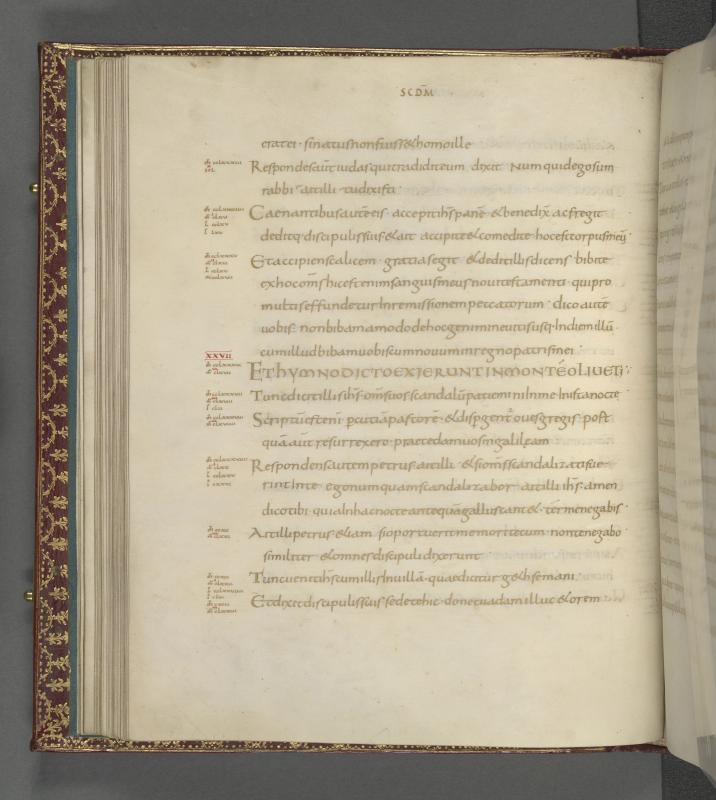 SCDM̄
erat ei · si natus non fuiss& homo ille
Respondes aut̄ iudas qui tradidit eum dixit Num quid ego sum
rabbi · ait illi tu dixisti ·
Caenantibus autē eis · accepit ih̄s panē · & benedix̄ ac fregit
deditq; discipulis suis & ait accipite & comedite hoc est corpus meū
Et accipiens calicem · gratias egit & dedit illis dicens bibite
ex hoc om̄s hic est enim sanguis meus noui testamenti · qui pro
multis effundetur In remissionem peccatorum · dico autē
uobis · non bibam amodo de hoc genimine uitis usq; In diem illū ·
XXVII
cum illud bibam uobiscum nouum in regno patris mei ·
ET hYMNO DICTO EXIERUNT IN MONTĒ OLIUETI ·
Tunc dicit illis ih̄s · om̄s uos scandalū patiemini In me · In ista nocte
Scriptū est eni percutiā pastorē · & dispgent̄ oues gregis · post
quā aut̄ resurrexero · praecedam uos in galileam
Respondens autem petrus ait illi · & si om̄s scandalizati fue
rint In te · ego numquam scandalizabor · ait illi ih̄s · amen
dico tibi · quia In hac nocte antequā gallus cant& · ter me negabis ·
Ait illi petrus · & iam si oportuerit me mori tecum non te negabo
similiter & omnes discipuli dixerunt
Tunc uenit ih̄s cum illis In uillā · quae dicitur g&hsemani ·
Et dixit discipulis suis sedete hic · donec uadam illuc & orem